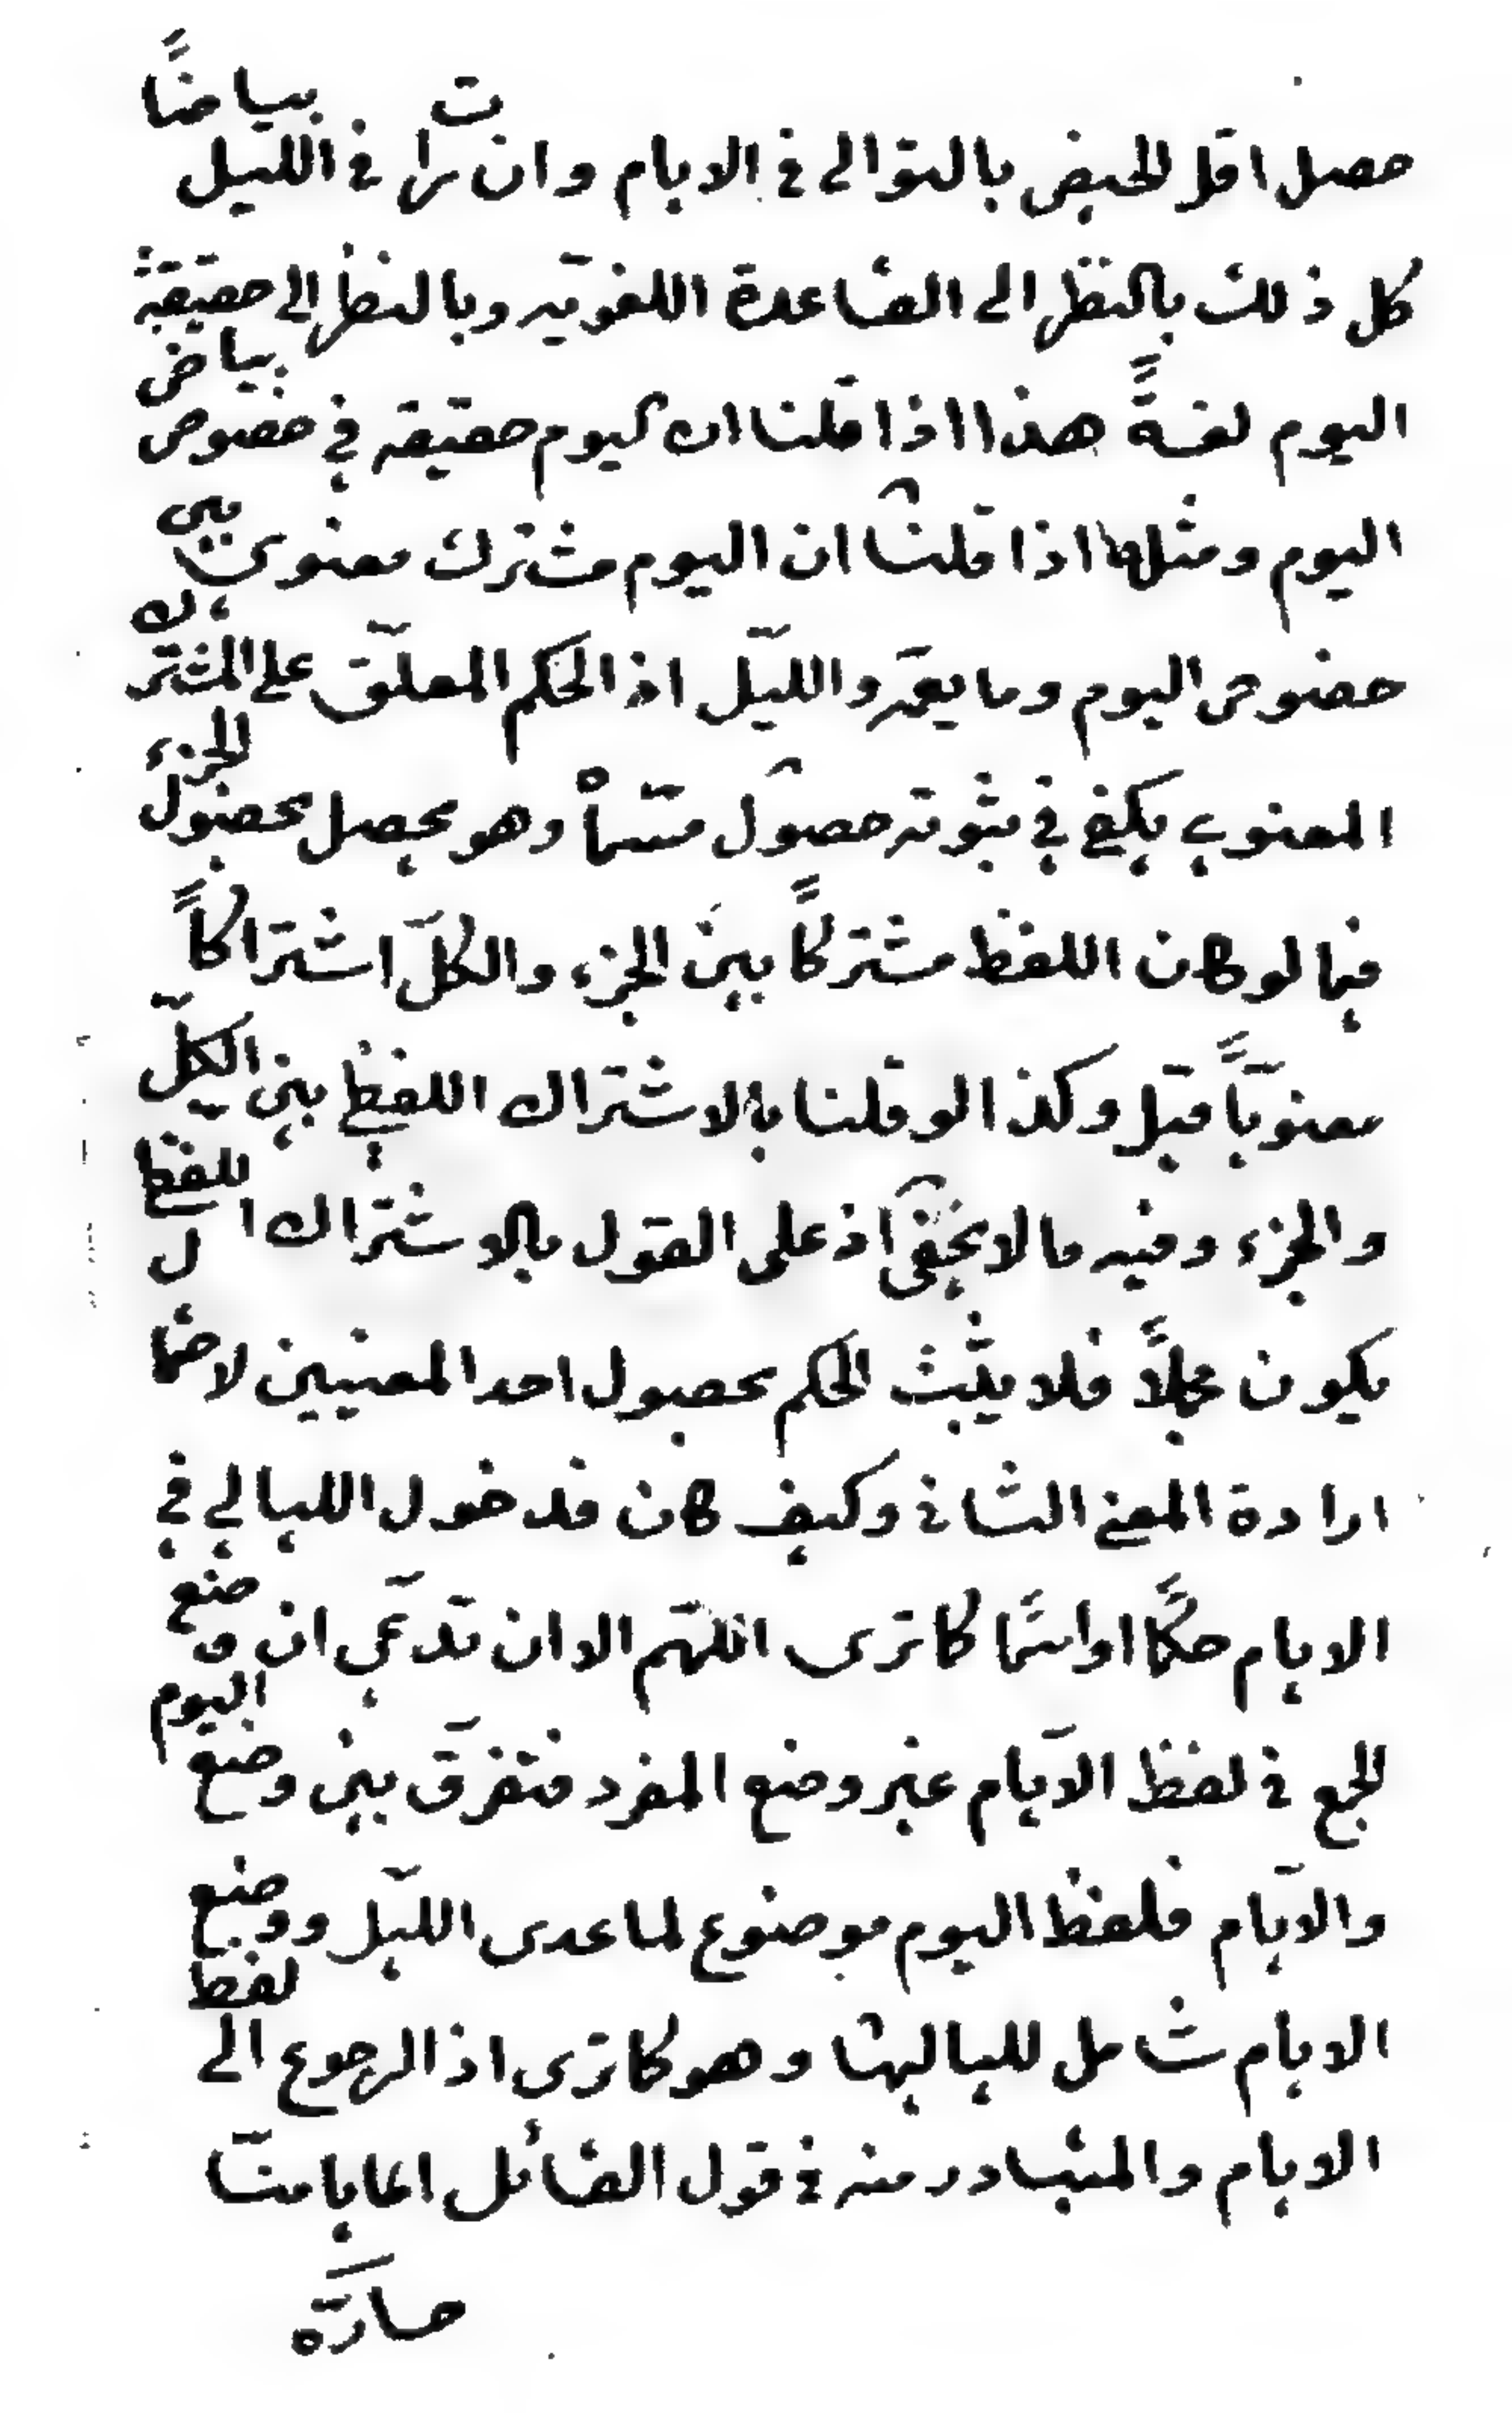 حصل اقل الحيض بالتوالى فى الايام وان رات فى الليل بياضًا
كل ذلك بالنظر الى القاعدة اللغويّه وبالنظر الى حقيقة
اليوم لغةً هذا اذا قلنا ان اليوم حقيقة في خصوص بياض
اليوم ومثلها اذا قلنا ان اليوم مشترك معنوى بين
خصوص اليوم وما يعمّه والليّل اذ الحكم المعلّق على المشترك
المعنوي يكفي في ثبوته حصول مسماه وهو يحصل بحصول الجزء
فيما لو كان اللفظ مشتركًا بين الجزء والكلّ اشتراكًا
معنويًّا قيل وكذا لو قلنا بالاشتراك اللفظي بين الكلّ
والجزء وفيه ما لا يخفى اذ على القول بالاشتراك اللفظي
يكون مجملًا فلا يثبت الحكم بحصول احد المعنيين لاحتمال
ارادة المعنى الثانى وكيف كان فدخول الليالي في
الايام حكمًا او اسمًا كما ترى اللهمّ الا ان تدعّي ان وضع
الجمع فى لفظ الايّام غير وضع المفرد فتفرّق بين وضع اليوم
والايّام فلفظ اليوم موضوع لما عدى الليّل ووضع
الايام شامل للياليها وهو كما ترى اذ المرجوع الى لفظ
الايام والمتبادر منه فى قول القائل ايّامنا
حارّة